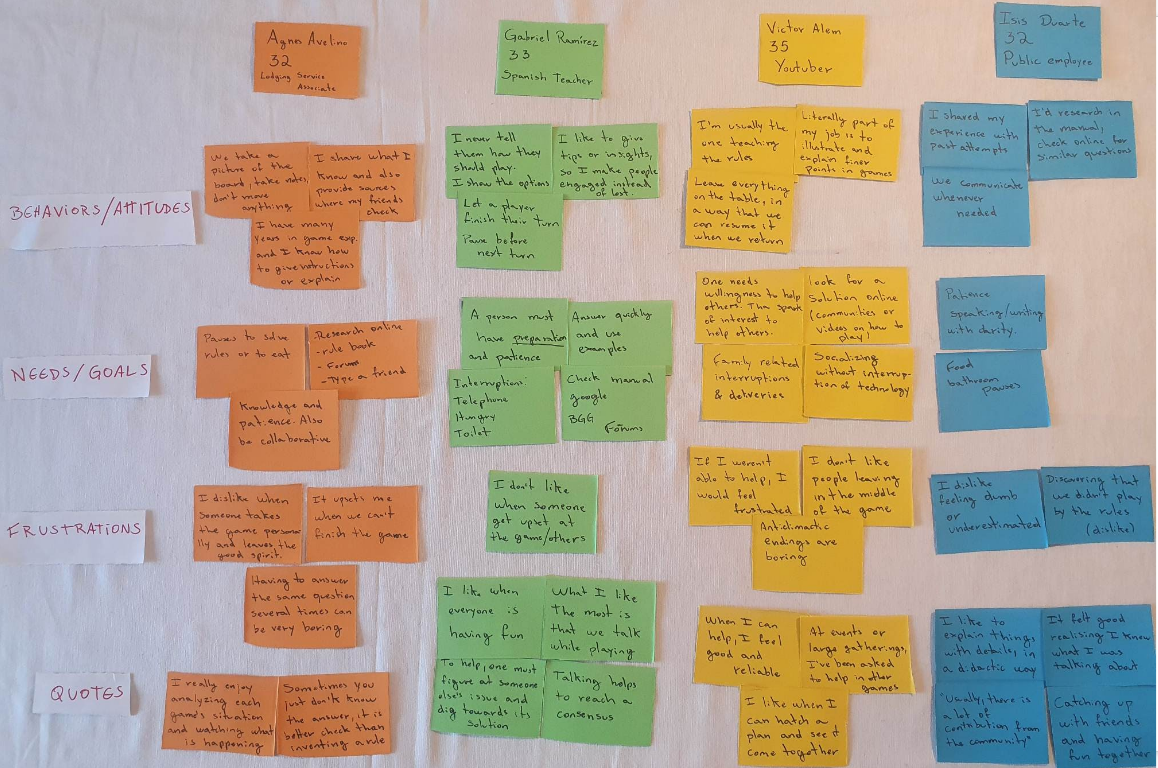 Agnes Avelino
32
Lodging Service
Associate
Gabriel Ramírez
33
Spanish Teacher
Victor Alem
35
Youtuber
Isis Duarte
32
Public employee
BEHAVIORS/ATTITUDES
We take a
picture of the
board, take notes,
don't move
anything
I share what I
know and also
provide sources
where my friends
check
I have many
years in game exp.
and I know how
to give
or explain
I never tell
them how they
should play.
I show the options
I like to give
tips or insights,
so I make people
engaged instead
of lost.
Let a player
finish their turn
Pause before
next turn
I'm usually the
one teaching
the rules
Literally part of
my job is to
illustrate and
explain finer
points in games
Leave everything
on the table, in
a way that we
can resume it
when we return
I shared my
experience with
past attempts
I'd research in
the manual,
check online for
similar questions
We communicate
whenever
needed
NEEDS/GOALS
Pauses to solve
rules or to eat
Research online
- rule book
- Forums
- Type a friend
Knowledge and
patience. Also
be collaborative
A person must
have preparation
and patience
Answer quickly
and use
examples
Interruptions:
Telephone
Hungry
Toilet
Check manual
google
BGG
Forums
One needs
willingness to help
others. The spark
of interest to
help others.
Look for a
Solution online
(communities or
videos on how to
play)
Family related
interruptions
& deliveries
Socializing
without interrup-
tion of technology
Patience
speaking/writing
with clarity.
Food
bathroom
pauses
FRUSTRATIONS
I dislike when
someone takes
the game persona
lly and leaves the
good spirit.
It upsets me
when we can't
finish the game
Having to answer
the same question
several times can
be very boring
I don't like
when someone
get upset at
the game/others
If I weren't
able to help, I
would feel
frustrated
I don't like
people leaving
in the middle
of the game
Anticlimactic
endings are
boring
I dislike
feeling dumb
or
underestimated
Discovering that
we didn't play
by the rules
(dislike)
QUOTES
I really enjoy
analyzing each
game's situation
and watching what
is happening
Sometimes you
just don't know
the answer, it is
better check than
inventing a rule
I like when
everyone is
having fun
What I like
the most is
that we talk
while playing
To help, one must
figure at someone
else's issue and
dig towards its
solution
Talking helps
to reach a
consensus
When I can
help, I feel
good and
reliable
At events or
large gatherings,
I've been asked
to help in other
games
I like when I
can hatch a
plan and see it
come together
I like to
explain things
with details, in
a didactic way
It felt good
realising I knew
what I was
talking about
"Usually, there is
a lot of
contribution from
the community"
Catching up
with friends
and having
fun together